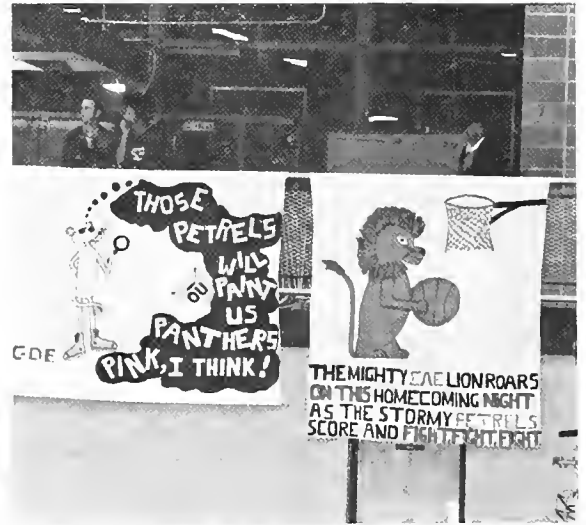 THOSE
PETRELS
WILL
PAINT
OU
US
PANTHERS
PINK, I THINK!
GDE
THE MIGHTY SAE LION ROARS
ON THIS HOMECOMING NIGHT
AS THE STORMY PETRELS
SCORE AND FIGHT FIGHT FIGHT